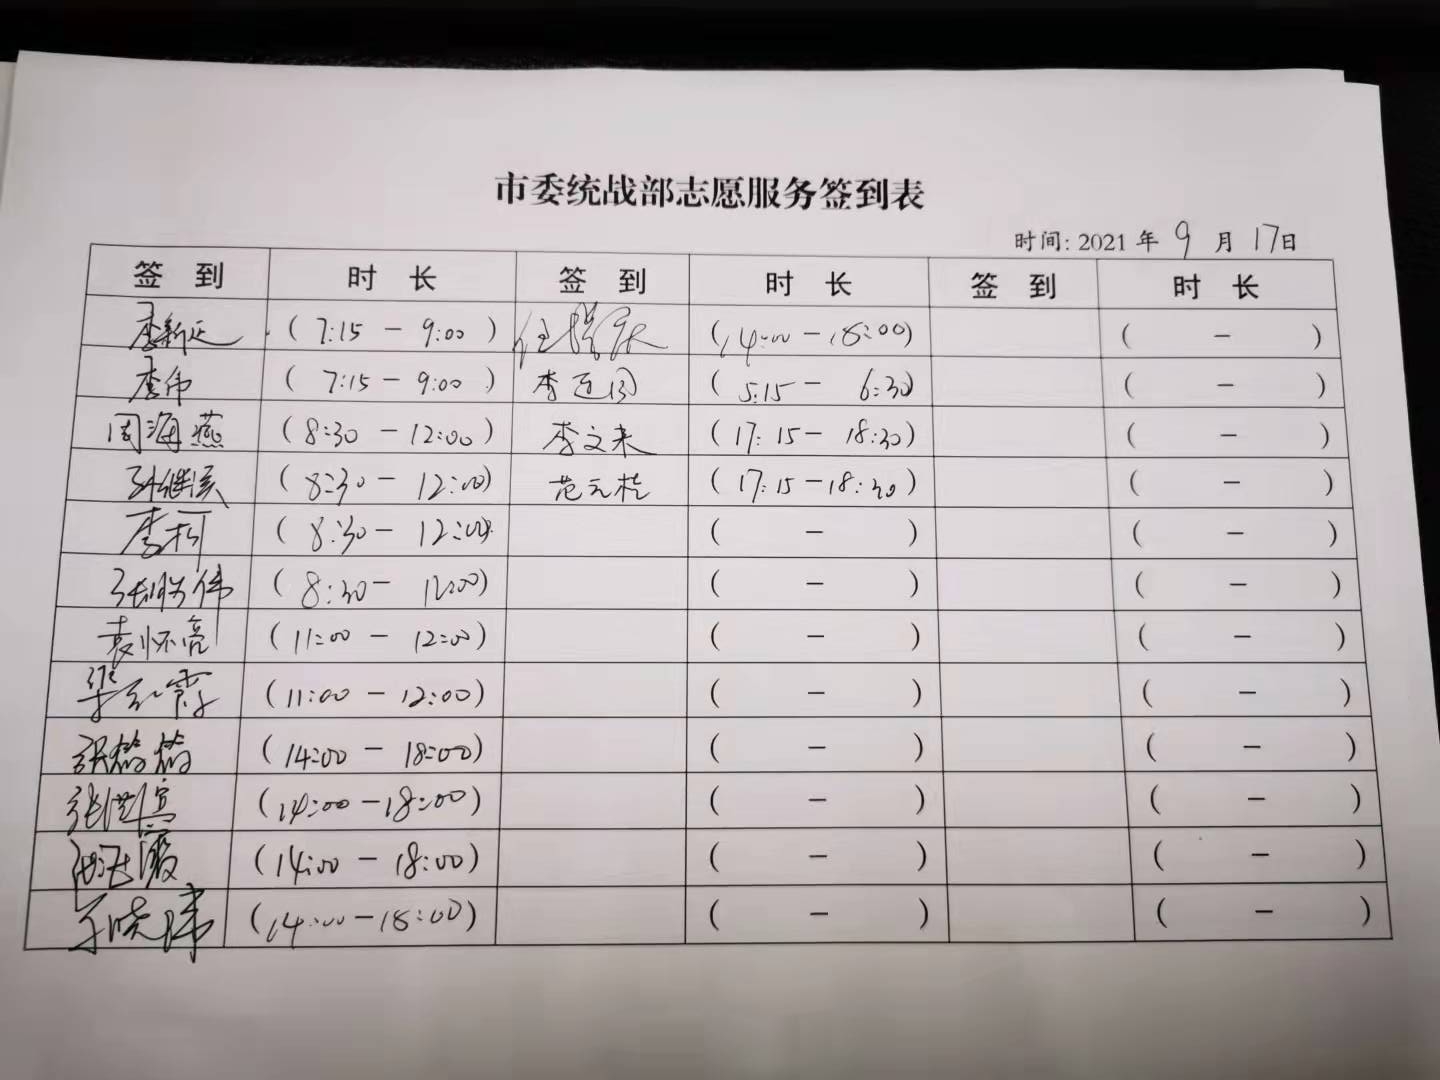 市委统战部志愿服务签到表
时间: 2021 年 9 月 17日
签 到 时 长 签 到 时 长 签 到 时 长
李新延 (7:15 - 9:00) (14:00 - 18:00) ( - )
李伟 (7:15 - 9:00) 李运周 (5:15 - 6:30) ( - )
周海燕 (8:30 - 12:00) 李文来 (17:15 - 18:30) ( - )
(8:30 - 12:00) 范元桂 (17:15 - 18:30) ( - )
李柯 (8:30 - 12:00) ( - ) ( - )
(8:30 - 12:00) ( - ) ( - )
袁怀亮 (11:00 - 12:00) ( - ) ( - )
梁红霞 (11:00 - 12:00) ( - ) ( - )
(14:00 - 18:00) ( - ) ( - )
(14:00 - 18:00) ( - ) ( - )
(14:00 - 18:00) ( - ) ( - )
于晓玮 (14:00 - 18:00) ( - ) ( - )